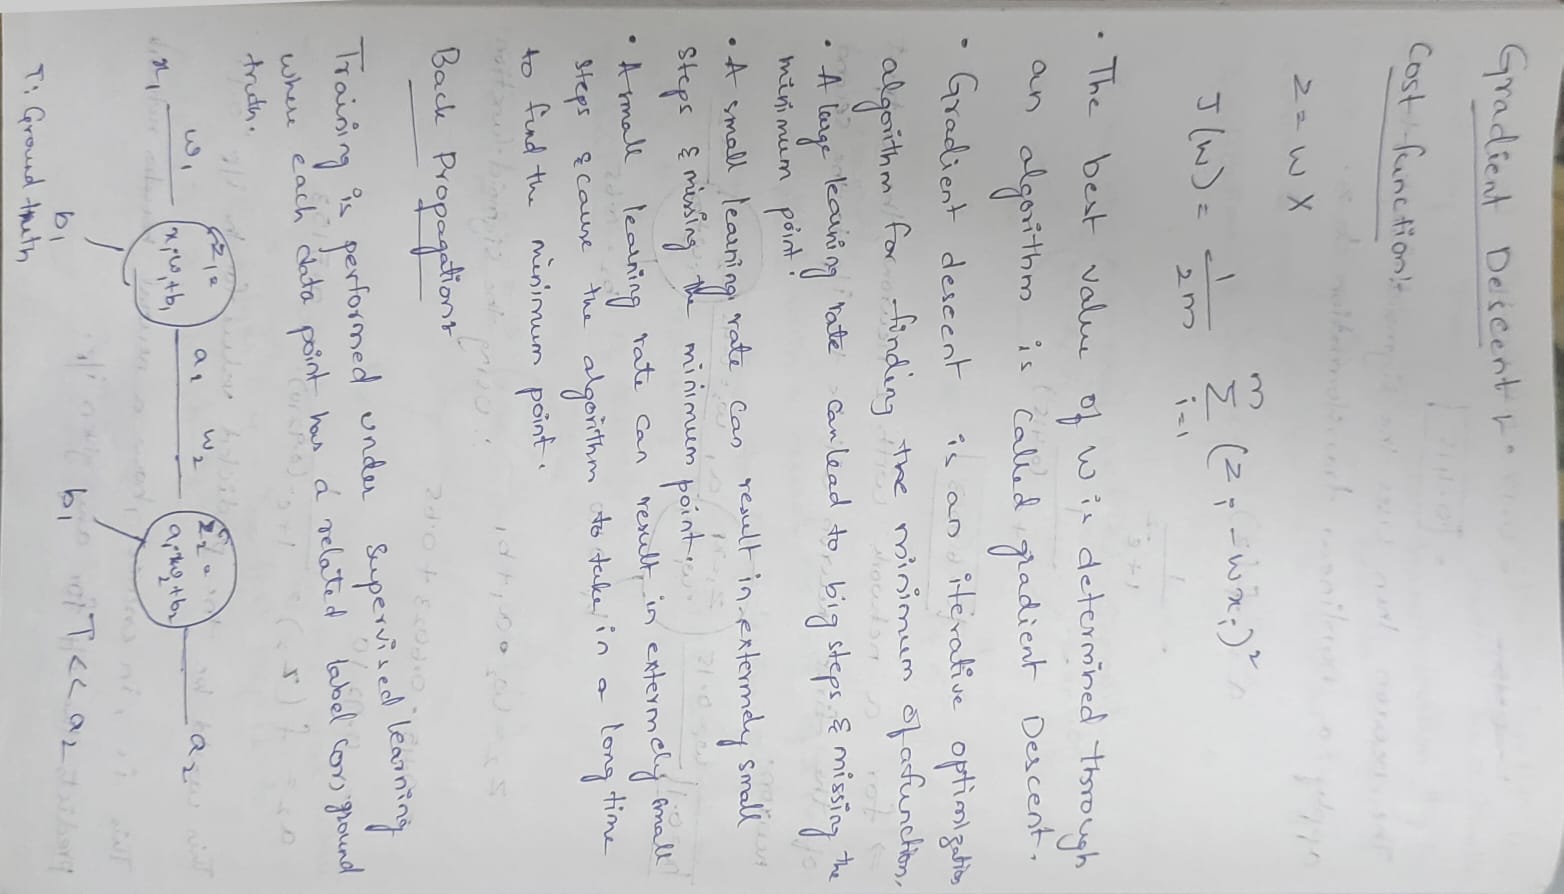 Gradient Descent :-
Cost function:-
z = w X
J(w) = 1/2m Σ i=1 m (z i - w x i)²
• The best value of w is determined through
an algorithm is called gradient Descent.
• Gradient descent is an iterative optimization
algorithm for finding the minimum of a function.
• A large learning rate can lead to big steps & missing the
minimum point.
• A small learning rate can result in extermely small
steps & missing the minimum point.
• A small learning rate can result in extermely small
steps & cause the algorithm to take in a long time
to find the minimum point.
Back Propagation:-
Training is performed under supervised learning
where each data point has a related label (or) ground
truth.
x1 w1 z1 = x1w1+b1 a1 w2 z2 = a1w2+b2 a2
b1 b1 T << a2
T: Ground truth